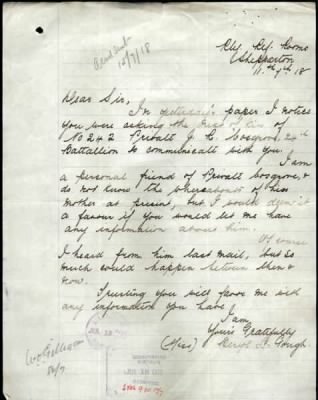 Rly. Rfr. Rooms
Shepparton
11th 7th 18
12/7/18
Dear Sir,
In yesterday's paper I notice
you were asking the next of kin of
No 242 Private J. C. Cosgrove 24th
Battallion to communicate with you.
I am
a personal friend of Private Cosgrove, &
do not know the whereabouts of his
mother at present, but I would deem it
a favour if you would let me have
any information about him.
Of course
I heard from him last mail, but so
much could happen between then &
now.
Trusting you will favor me with
any information you have
I am,
Yours Gratefully
(Miss) D. Gough